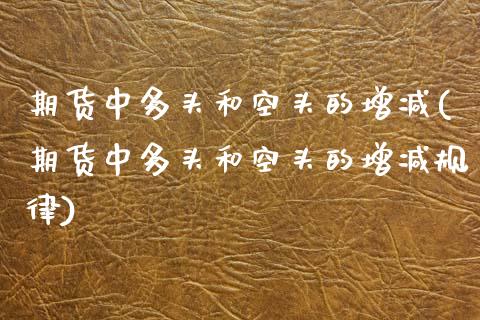 期货中多头和空头的增减(
期货中多头和空头的增减规
律)